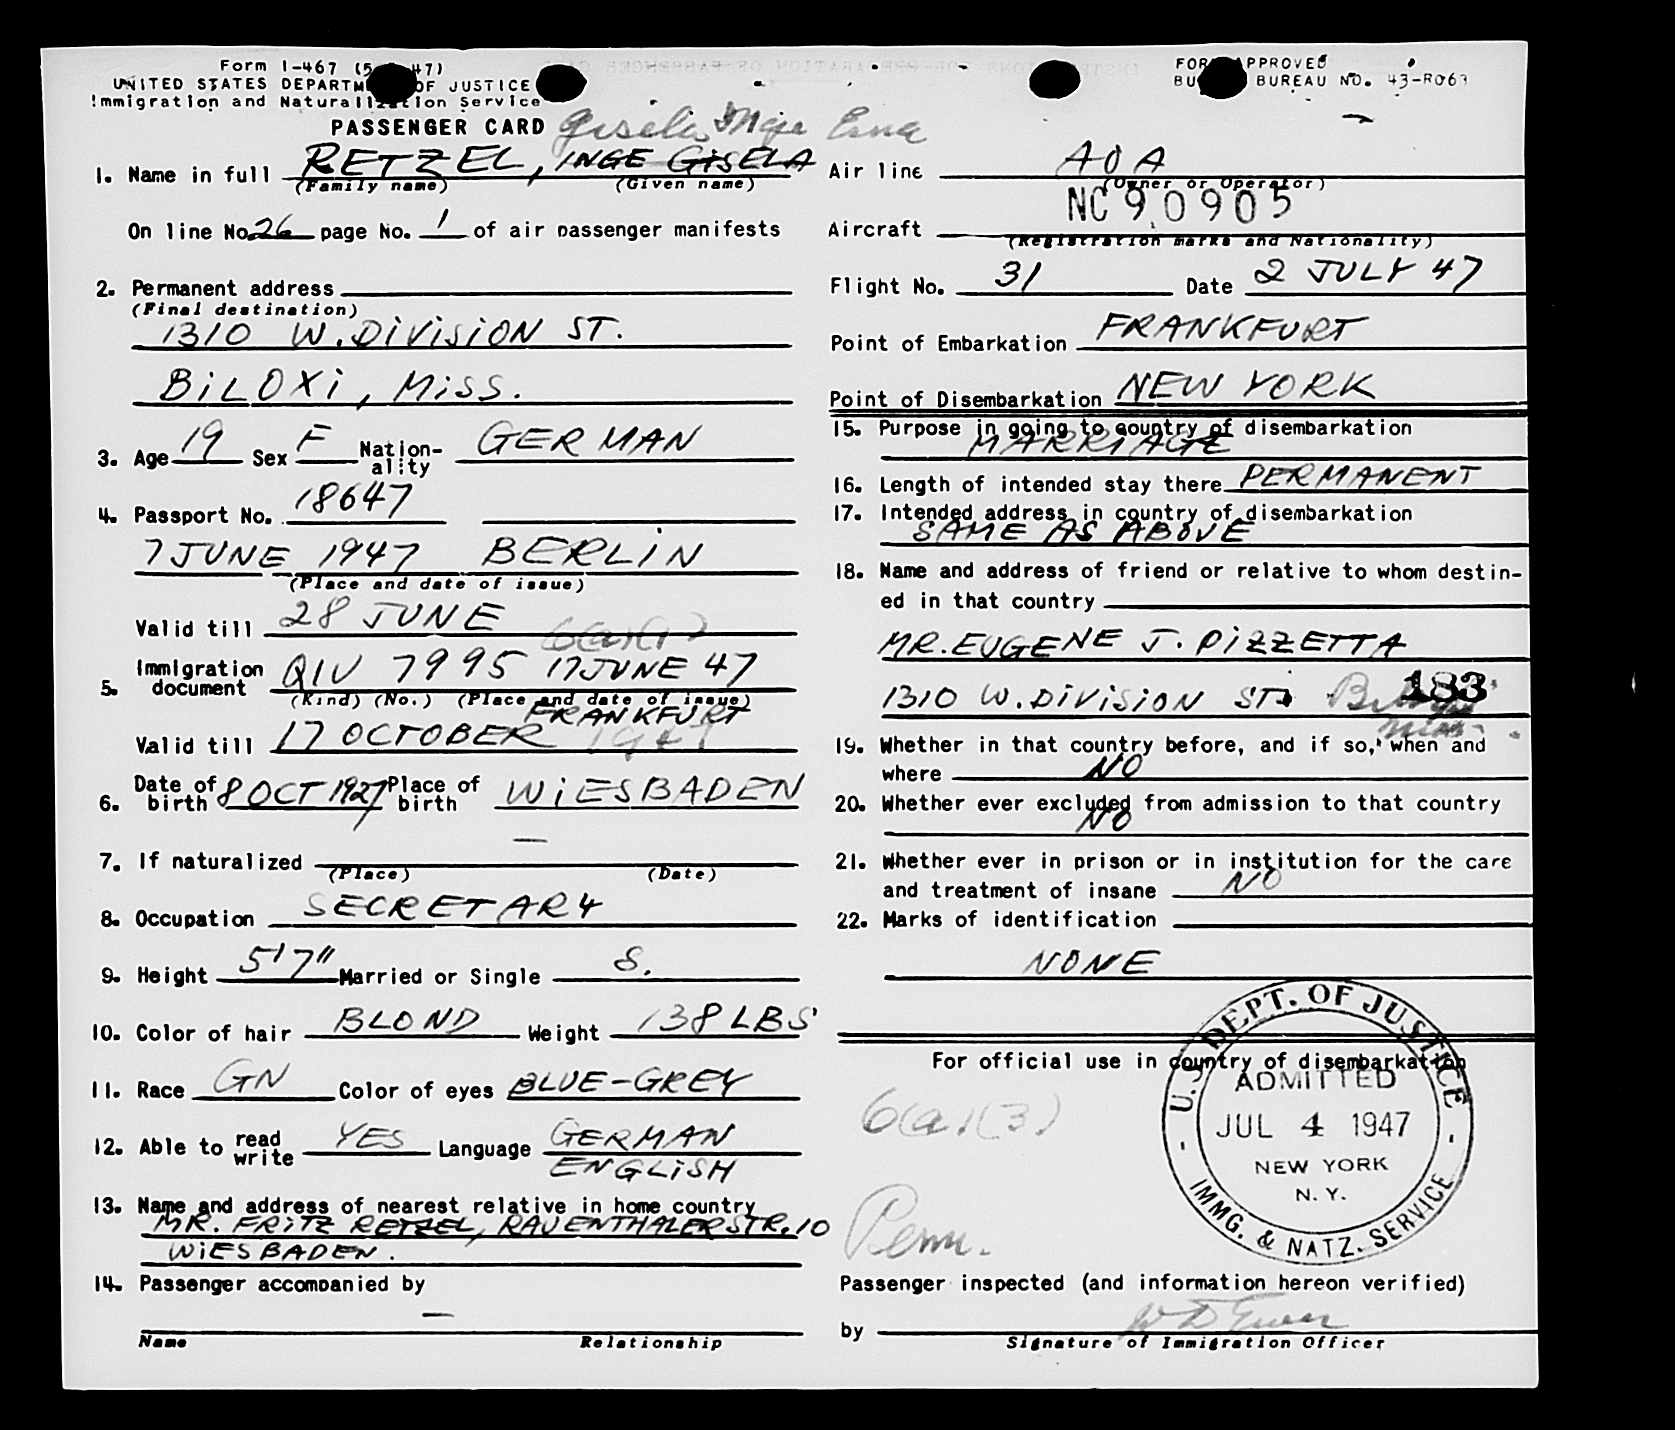 Form I-467 (5 47)
UNITED STATES DEPARTM OF JUSTICE
Immigration and Naturalization Service
PASSENGER CARD Gisela Inge Erna
1. Name in full RETZEL, INGE GISELA
(Family name) (Given name)
On line No. 26 page No. 1 of air passenger manifests
2. Permanent address
(Final destination)
1310 W. DIVISION ST.
BILOXI, MISS.
3. Age 19 Sex F Nation-ality GERMAN
4. Passport No. 18647
7 JUNE 1947 BERLIN
(Place and date of issue)
Valid till 28 JUNE
5. Immigration document QIV 7995 17 JUNE 47
(Kind) (No.) (Place and date of issue)
FRANKFURT
Valid till 17 OCTOBER 1947
6. Date of birth 8 OCT 1927 Place of birth WIESBADEN
7. If naturalized —
(Place) (Date)
8. Occupation SECRETARY
9. Height 5'7" Married or Single S.
10. Color of hair BLOND Weight 138 LBS
11. Race GN Color of eyes BLUE-GREY
12. Able to read write YES Language GERMAN
ENGLISH
13. Name and address of nearest relative in home country
MR. FRITZ RETZEL, RAUENTHALERSTR. 10
WIESBADEN.
14. Passenger accompanied by
—
Name Relationship
FOR APPROVED
BU BUREAU NO. 43-R063
Air line AOA
(Owner or Operator)
NC90905
Aircraft
(Registration marks and Nationality)
Flight No. 31 Date 2 JULY 47
Point of Embarkation FRANKFURT
Point of Disembarkation NEW YORK
15. Purpose in going to country of disembarkation
MARRIAGE
16. Length of intended stay there PERMANENT
17. Intended address in country of disembarkation
SAME AS ABOVE
18. Name and address of friend or relative to whom destin-
ed in that country
MR. EUGENE J. PIZZETTA
1310 W. DIVISION ST. 183
Miss.
19. Whether in that country before, and if so, when and
where NO
20. Whether ever excluded from admission to that country
NO
21. Whether ever in prison or in institution for the care
and treatment of insane NO
22. Marks of identification
NONE
For official use in country of disembarkation
6(a)(3)
Perm.
U.S. DEPT. OF JUSTICE
ADMITTED
JUL 4 1947
NEW YORK
N.Y.
IMMG. & NATZ. SERVICE
Passenger inspected (and information hereon verified)
by
Signature of Immigration Officer